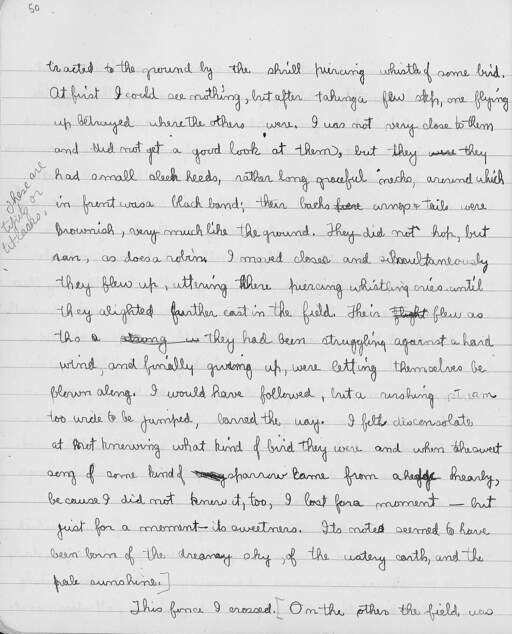 50
tracted to the ground by the shrill piercing whistle of some bird.
At first I could see nothing, but after taking a few steps, one flying
up betrayed where the others were. I was not very close to them
and did not get a good look at them, but they were they
had small sleek heeds, rather long graceful necks, around which
in front was a black band; their backs were wings & tails were
Brownish, very much like the ground. They did not hop, but
ran, as does a robin. I moved closer and simultaneously
they flew up, uttering there piercing whistling cries until
they alighted further east in the field. Their flight flew as
tho a strong w they had been struggling against a hard
wind, and finally giving up, were letting themselves be
blown along. I would have followed, but a rushing stream
too wide to be jumped, barred the way. I felt disconsolate
at not knowing what kind of bird they were and when the sweet
song of some kind of sparrow came from a hedge nearly,
because I did not know it, too, I lost for a moment — but
just for a moment — its sweetness. Its notes seemed to have
been born of the dreamy sky, of the watery earth, and the
pale sunshine.]
This fence I crossed. [On the other the field was
these are
or